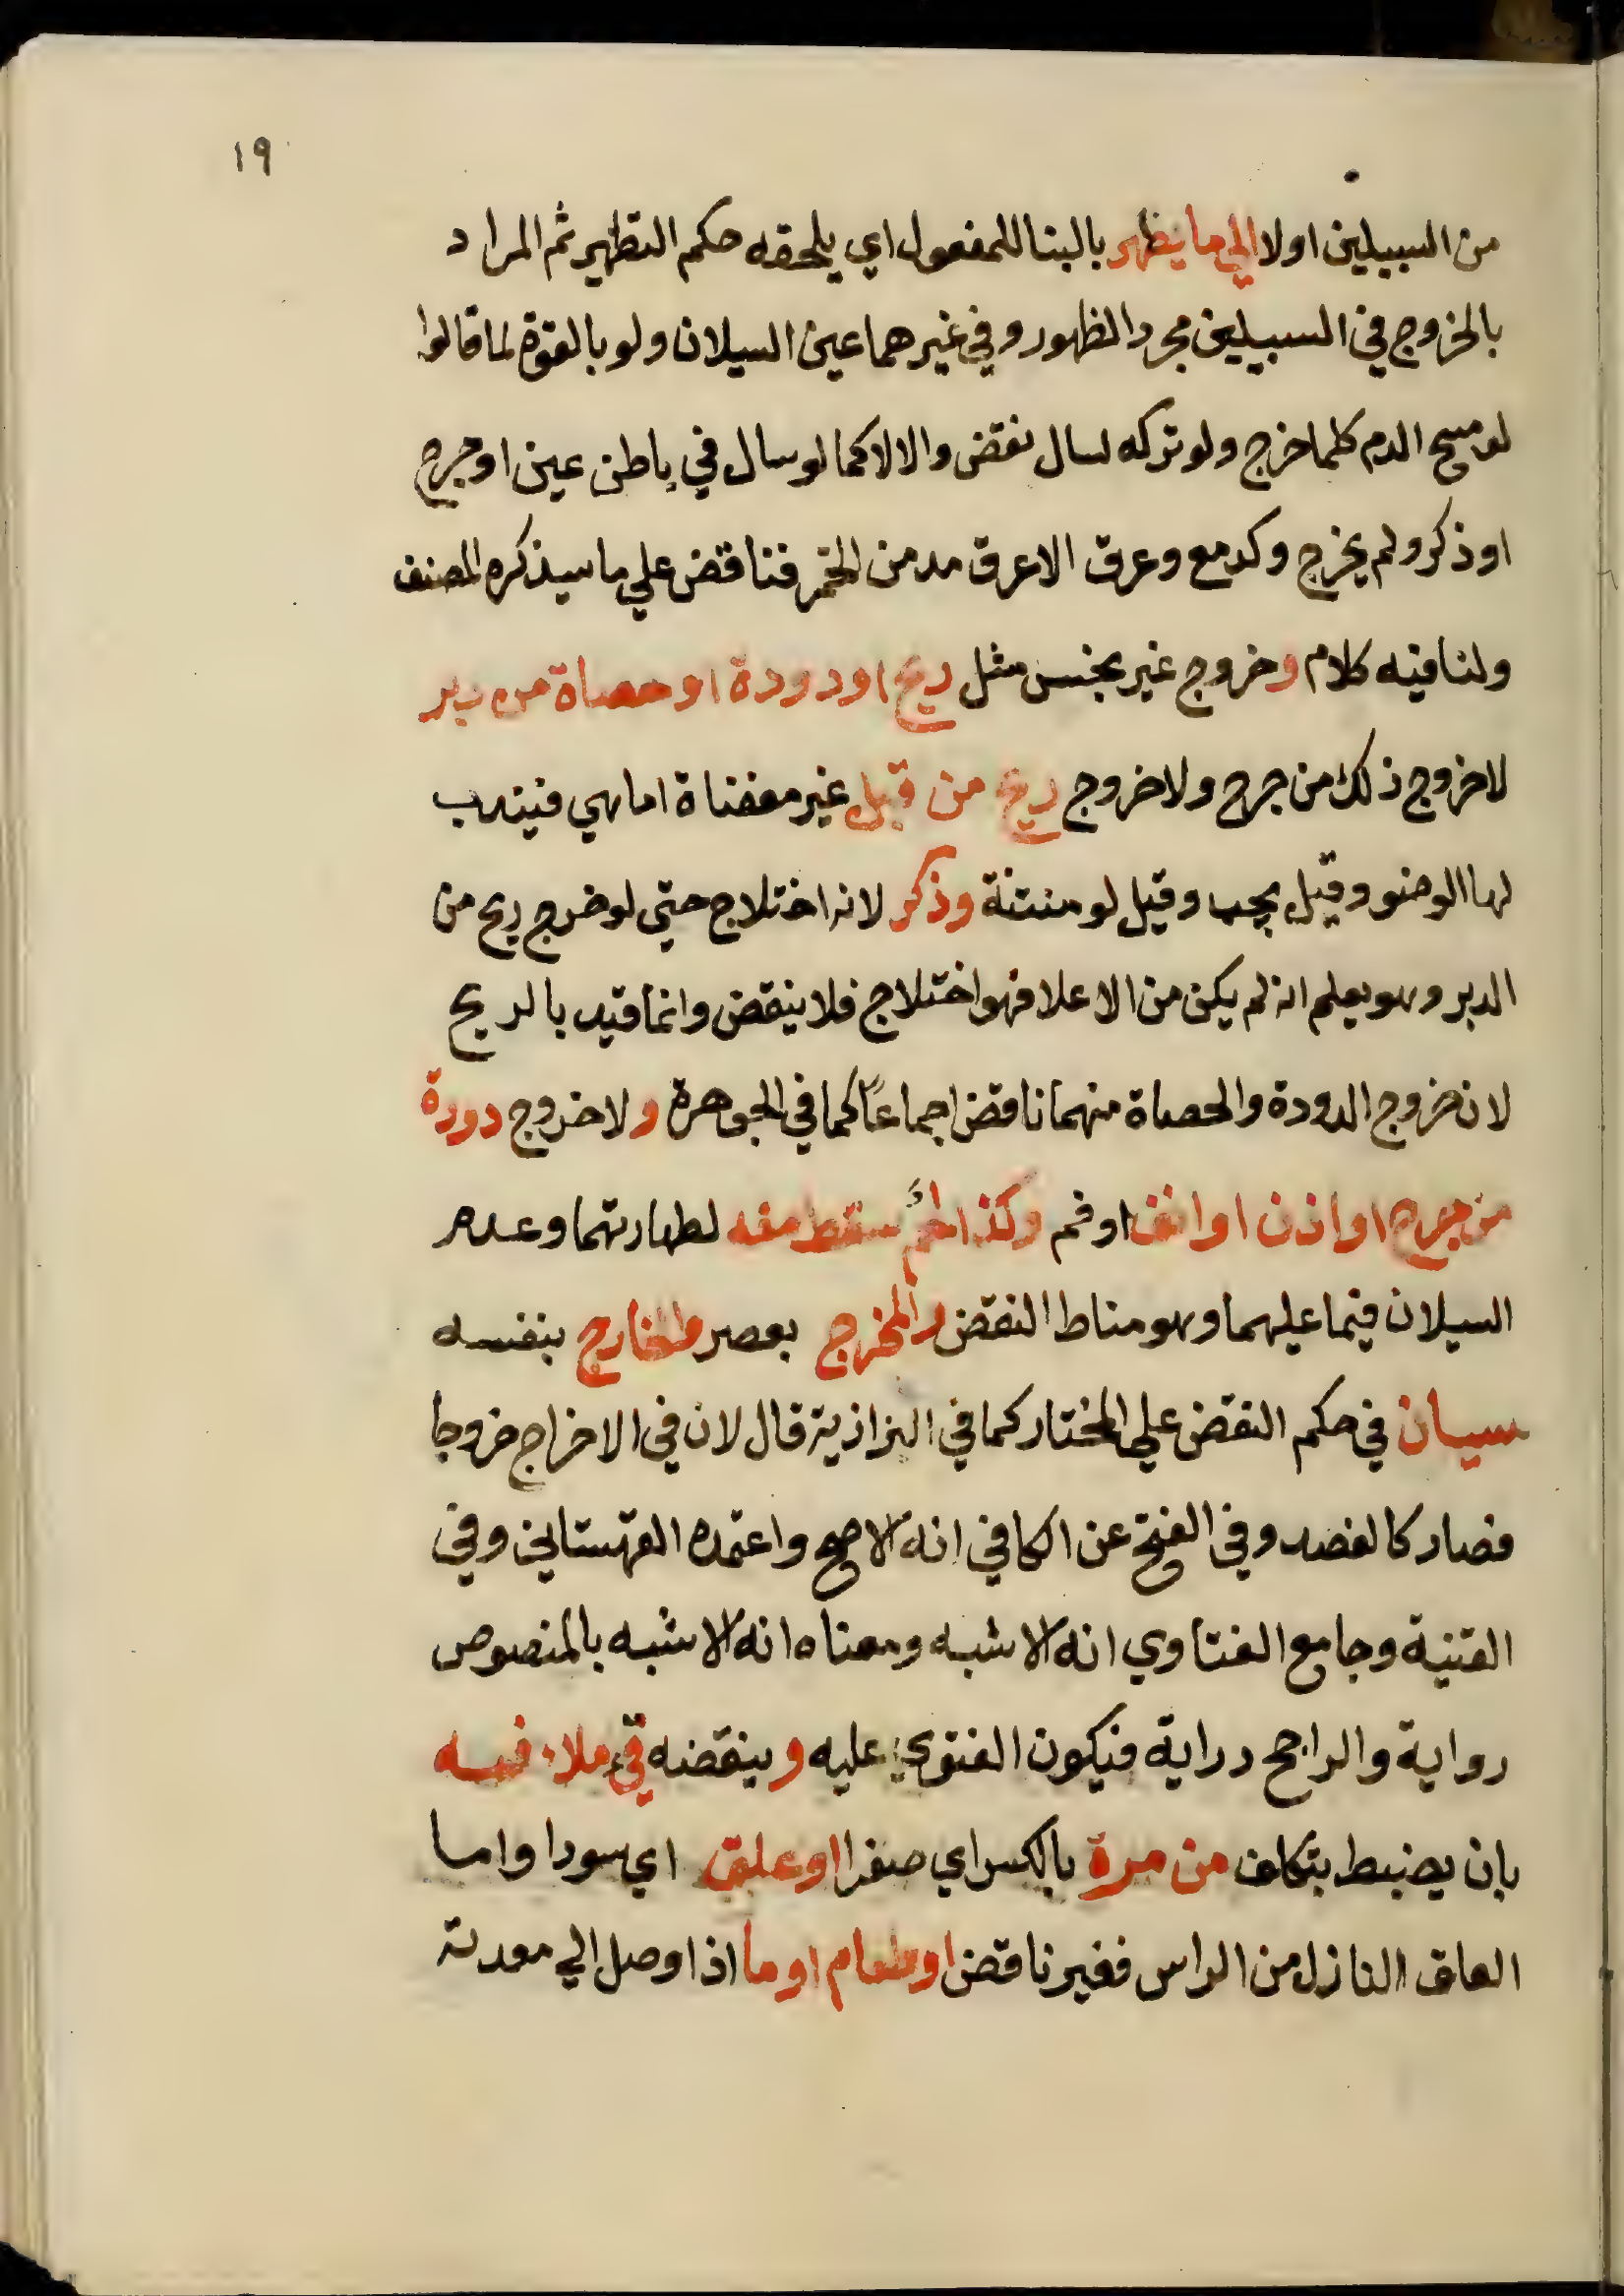 ١٩
من السبيلين اولا الي ما يطهر بالبنا للمفعول اي يلحقه حكم التطهير ثم المراد
بالخروج في السبيلين مجرد الظهور وفي غيرهما عين السيلان ولو بالقوة لما قالوا
لو مسح الدم كلما خرج ولو تركه لسال نقض والا لا كما لو سال في باطن عين او جرح
او ذكر ولم يخرج وكدمع وعرق الا عرق مدمن الخمر فناقض علي ما سيذكره المصنف
ولنا فيه كلام وخروج غير نجس مثل ريح او دودة او حصاة من دبر
لا خروج ذلك من جرح ولا خروج ريح من قبل غير مفضاة اما هي فيندب
لها الوضو وقيل يجب وقيل لو منتنة وذكر لانه اختلاج حتي لو خرج ريح من
الدبر وهو يعلم انه لم يكن من الاعلا فهو اختلاج فلا ينقض وانما قيد بالريح
لان خروج الدودة والحصاة منهما ناقض اجماعاً كما في الجوهرة ولا خروج دودة
من جرح او اذن او انف او فم وكذا لحم سقط منه لطهارتهما وعدم
السيلان فيما عليهما وهو مناط النقض والمخرج بعصر والخارج بنفسه
سيان في حكم النقض علي المختار كما في البزازية قال لان في الاخراج خروجا
فصار كالفصد وفي الفتح عن الكافي انه الاصح واعتمده القهستاني وفي
القنية وجامع الفتاوي انه الاشبه ومعناه انه الاشبه بالمنصوص
رواية والراجح دراية فيكون الفتوي عليه وينقضه قيء ملاء فيه
بان يضبط بتكلف من مرة بالكسر اي صفرا او علق اي سودا واما
العلق النازل من الراس فغير ناقض او طعام او ما اذا وصل الي معدته